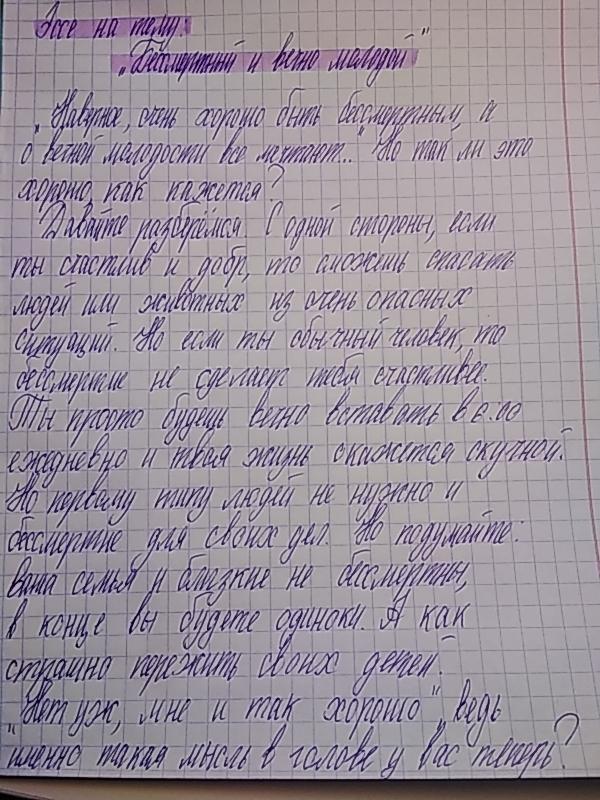 Эссе на тему:
"Бессмертный и вечно молодой"
"Наверное, очень хорошо быть бессмертным, а
о вечной молодости все мечтают..." Но так ли это
хорошо, как кажется?
Давайте разберёмся. С одной стороны, если
ты счастлив и добр, то сможешь спасать
людей или животных из очень опасных
ситуаций. Но если ты обычный человек, то
бессмертие не сделает тебя счастливее.
Ты просто будешь вечно вставать в 6:00
ежедневно и твоя жизнь окажется скучной.
Но первому типу людей не нужно и
бессмертие для своих дел. Но подумайте:
ваша семья и близкие не бессмертны,
в конце вы будете одиноки. А как
страшно пережить своих детей.
"Нет уж, мне и так хорошо", ведь
именно такая мысль в голове у вас теперь?